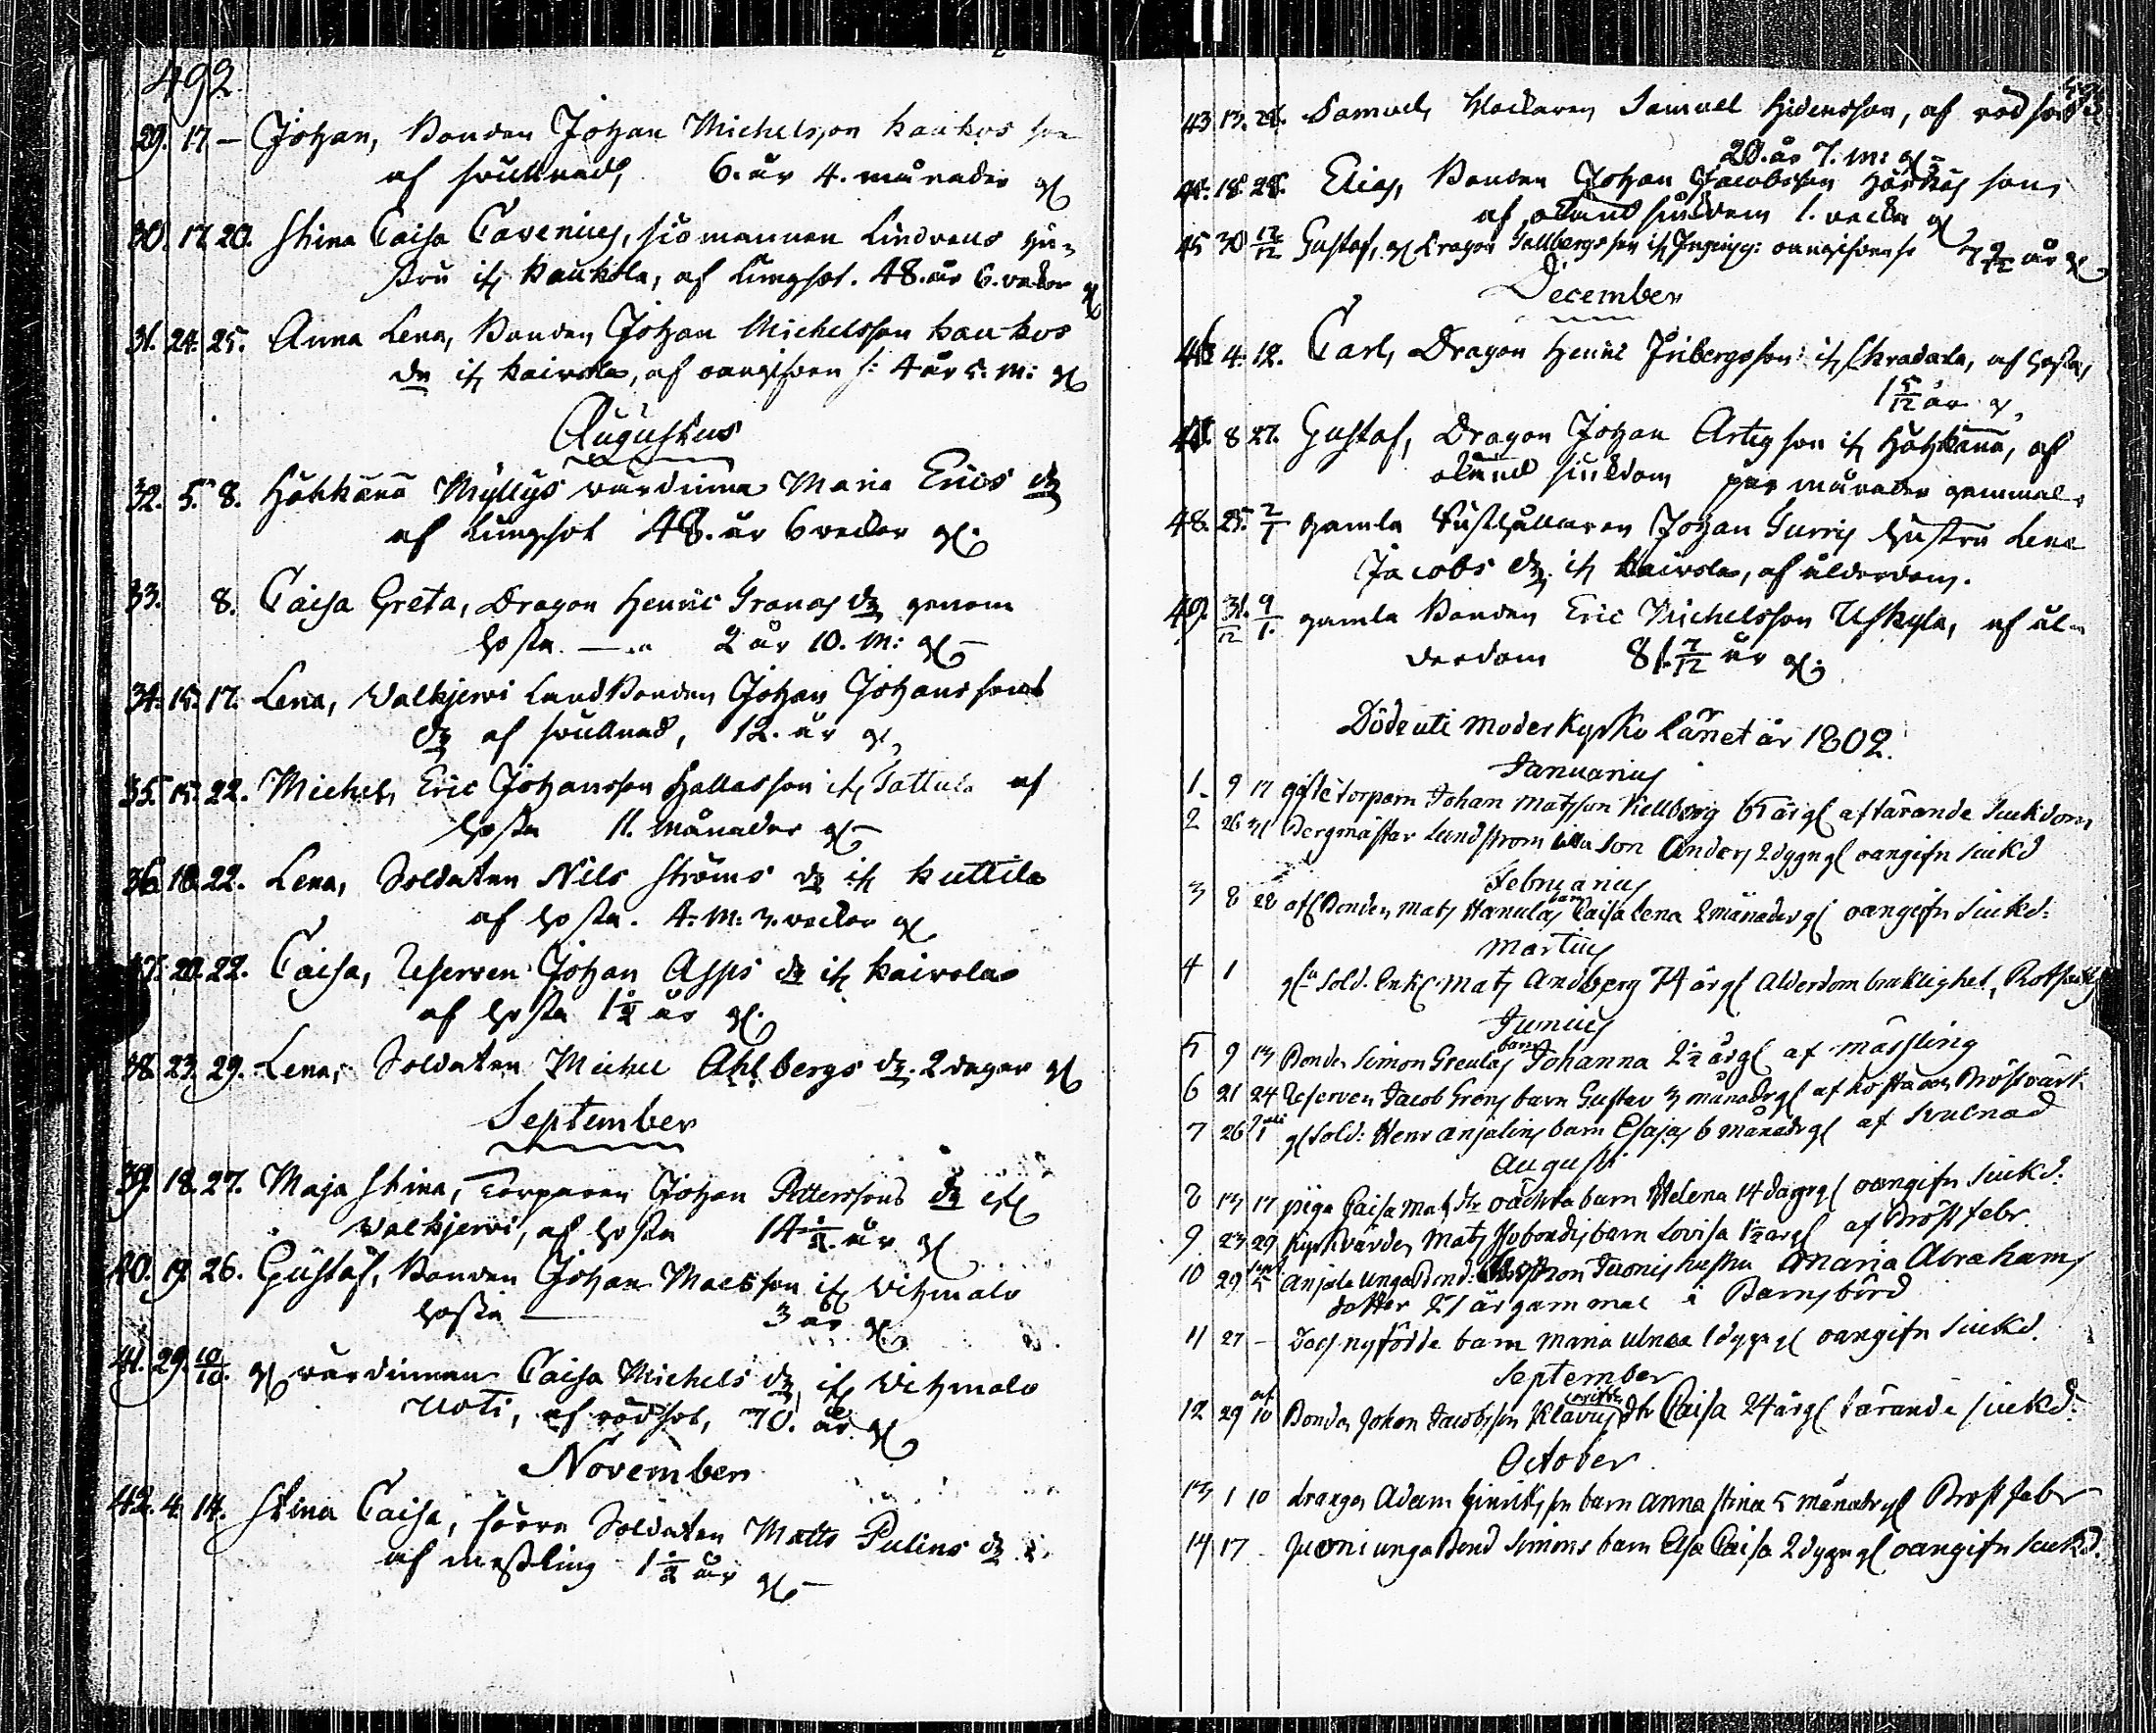 492.
29. 17 – Johan, Bonden Johan Michelsson Kaukos son
af svullnad, 6. år 4. månader gl
30. 17. 20. Stina Caisa Cavenius, siömannen Lindrens hu-
stru if Kaukola, af Lungsot. 48. år 6. veckor gl
31. 24. 25. Anna Lena, Bonden Johan Michelsson Kaukos
dr if Kairola, af oangifven s: 4 år 5. m: gl
Augustus
32. 5. 8. Håkkänä Myllys wärdinna Maria Erics dr
af Lungsot 48. år 6 veckor gl.
33. 8. Caisa Greta, Dragon Henric Granas dr genom
hosta 2 år 10. m: gl
34. 15. 17. Lena, Walkjerwi Landbonden Johan Johanssons
dr af svullnad, 12. år gl
35. 15. 22. Michel, Eric Johansson Hallas son if Tattula af
hosta 11. månader gl
36. 18. 22. Lena, Soldaten Nils Ströms dr if Kuttila
af hosta. 4. m: 3. veckor gl
37. 20. 22. Caisa, Reserven Johan Asps dr if Kairola
af hosta 1 1/2 år gl.
38. 23. 29. Lena, Soldaten Michel Ahlbergs dr. 2 dagar gl
September
39. 18. 27. Maja Stina, Torparen Johan Petterssons dr if
Walkjerwi, af hosta 14 1/2 år gl
40. 19. 26. Gustaf, Bonden Johan Matsson if Vitmalo
hosta 3 år gl
41. 29. 10/10. gl wärdinnan Caisa Michels dr if Vitmalo
Uoti, af rödsot, 70. år gl
November
42. 4. 14. Stina Caisa, förre Soldaten Matts Pulins dr
af messling 1 1/2 år gl
43 13. 28. Samuel, Klockaren Samuel Hidensson, af rödsot
20. år 7. m: gl
44. 18. 28. Elias, Bonden Johan Jacobsson son,
af okänd siukdom 1. vecka gl
45 30 12/12 Gustaf, gl Dragon Gallbergs son if oangifven s: 7 9/12 år gl
December
46 4. 12. Carl, Dragon Henric Fribergs son if Skradarla, af hosta,
1 5/12 år gl
47. 8 27. Gustaf, Dragon Johan Artig son if Håhkänä, af
okänd siukdom par månader gammal
48. 25. 2/1 gamla Rusthållaren Johan Gurris hustru Lena
Jacobs dr. if Kairola, af ålderdom.
49. 31/12 9/1. gamla Bonden Eric Michelsson Uskyla, af ål-
derdom 81 7/12 år gl.
Döde uti Moderkyrko Länet år 1802.
Januarius
1. 9 17 gifte torparn Johan Matsson Kellberg 65 år gl af tärande siukdom
2 26 31 Bergmästar Lundström son Anders 2 dygn gl oangifn siukd
Februarius
3 8 28 afl Bonden Mats Hanulas barn Caisa Lena 2 månader gl oangifn siukd:
Martius
4 1 gl Sold. Enkl: Mats Andberg 74 år gl Alderdom braklighet,
Junius
5 9 13 Bonden Simon Greulas barn Johanna 2 1/2 år gl af mässling
6 21 24 Reserven Jacob Gröns barn Gustav 3 månadr gl af hosta och Bröstvärk
7 26 Juli 1 gl Sold: Henr Anjalins barn Esajas 6 månadr gl af svulnad
Augusti
8 13 17 piga Caisa Mats dtr oächta barn Helena 14 dagar gl oangifn siukd:
9. 23 29 Kyrkvärden Mats barn Lovisa 1 1/2 år gl af Bröstfebr.
10 29 Sept 5 Anjala unga Bond: Tuonis hustru Maria Abrahams
dotter 27 år gammal i Barnsbörd
11 27 – Dess nyfödde barn Maria Ulrica 1 dygn gl oangifn siukd.
September
12 29 oct 10 Bonden Johan Jacobsson Klavus ogifte dtr Caisa 24 år gl tärande siukd:
October
13 1 10 drängen Adam Hinriks sn barn Anna Stina 5 månadr gl Bröstfebr
14 17 – Juoni unga Bond Simons barn Elsa Caisa 2 dygn gl oangifn siukd.